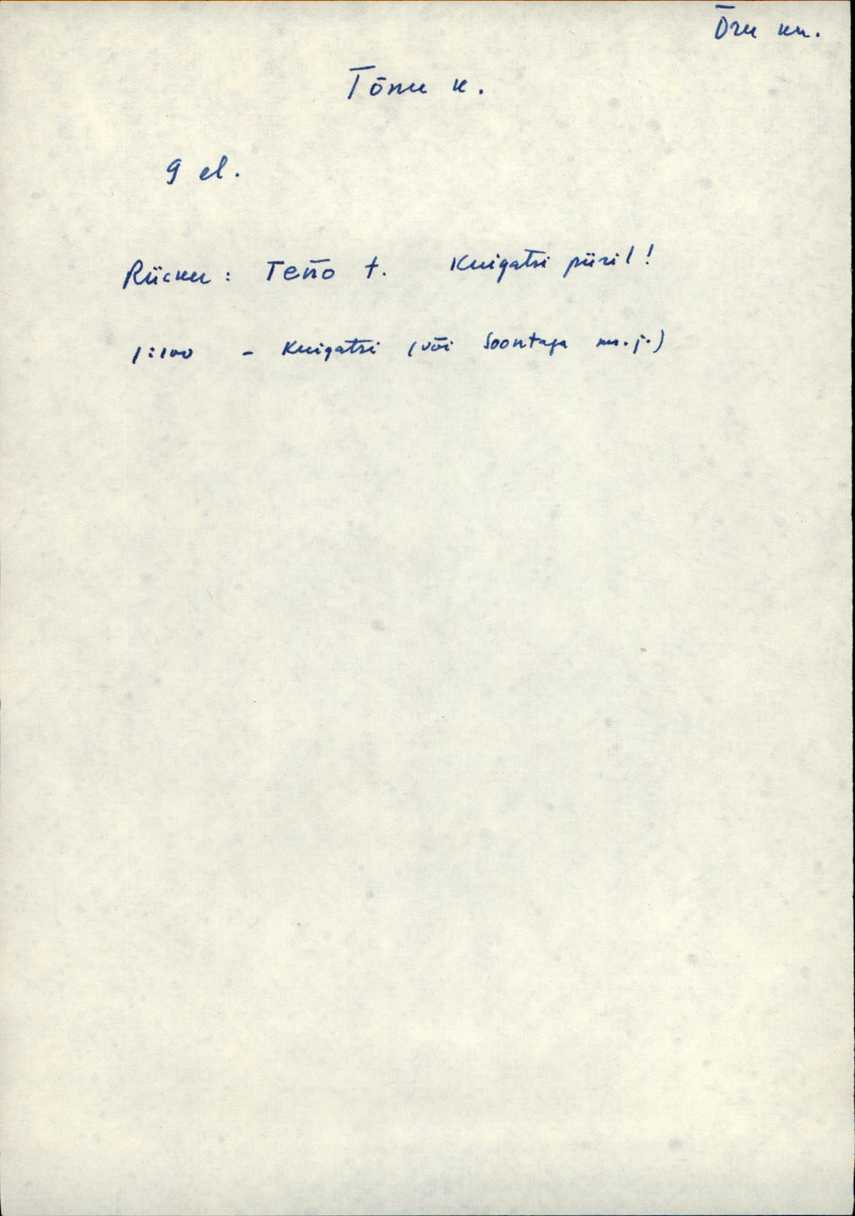 Õru kn.
Tõnu k.
9 el.
Rücker: Teño t. Kuigatsi piiril!
1:100 - Kuigatsi (või Soontaga mn. j.)